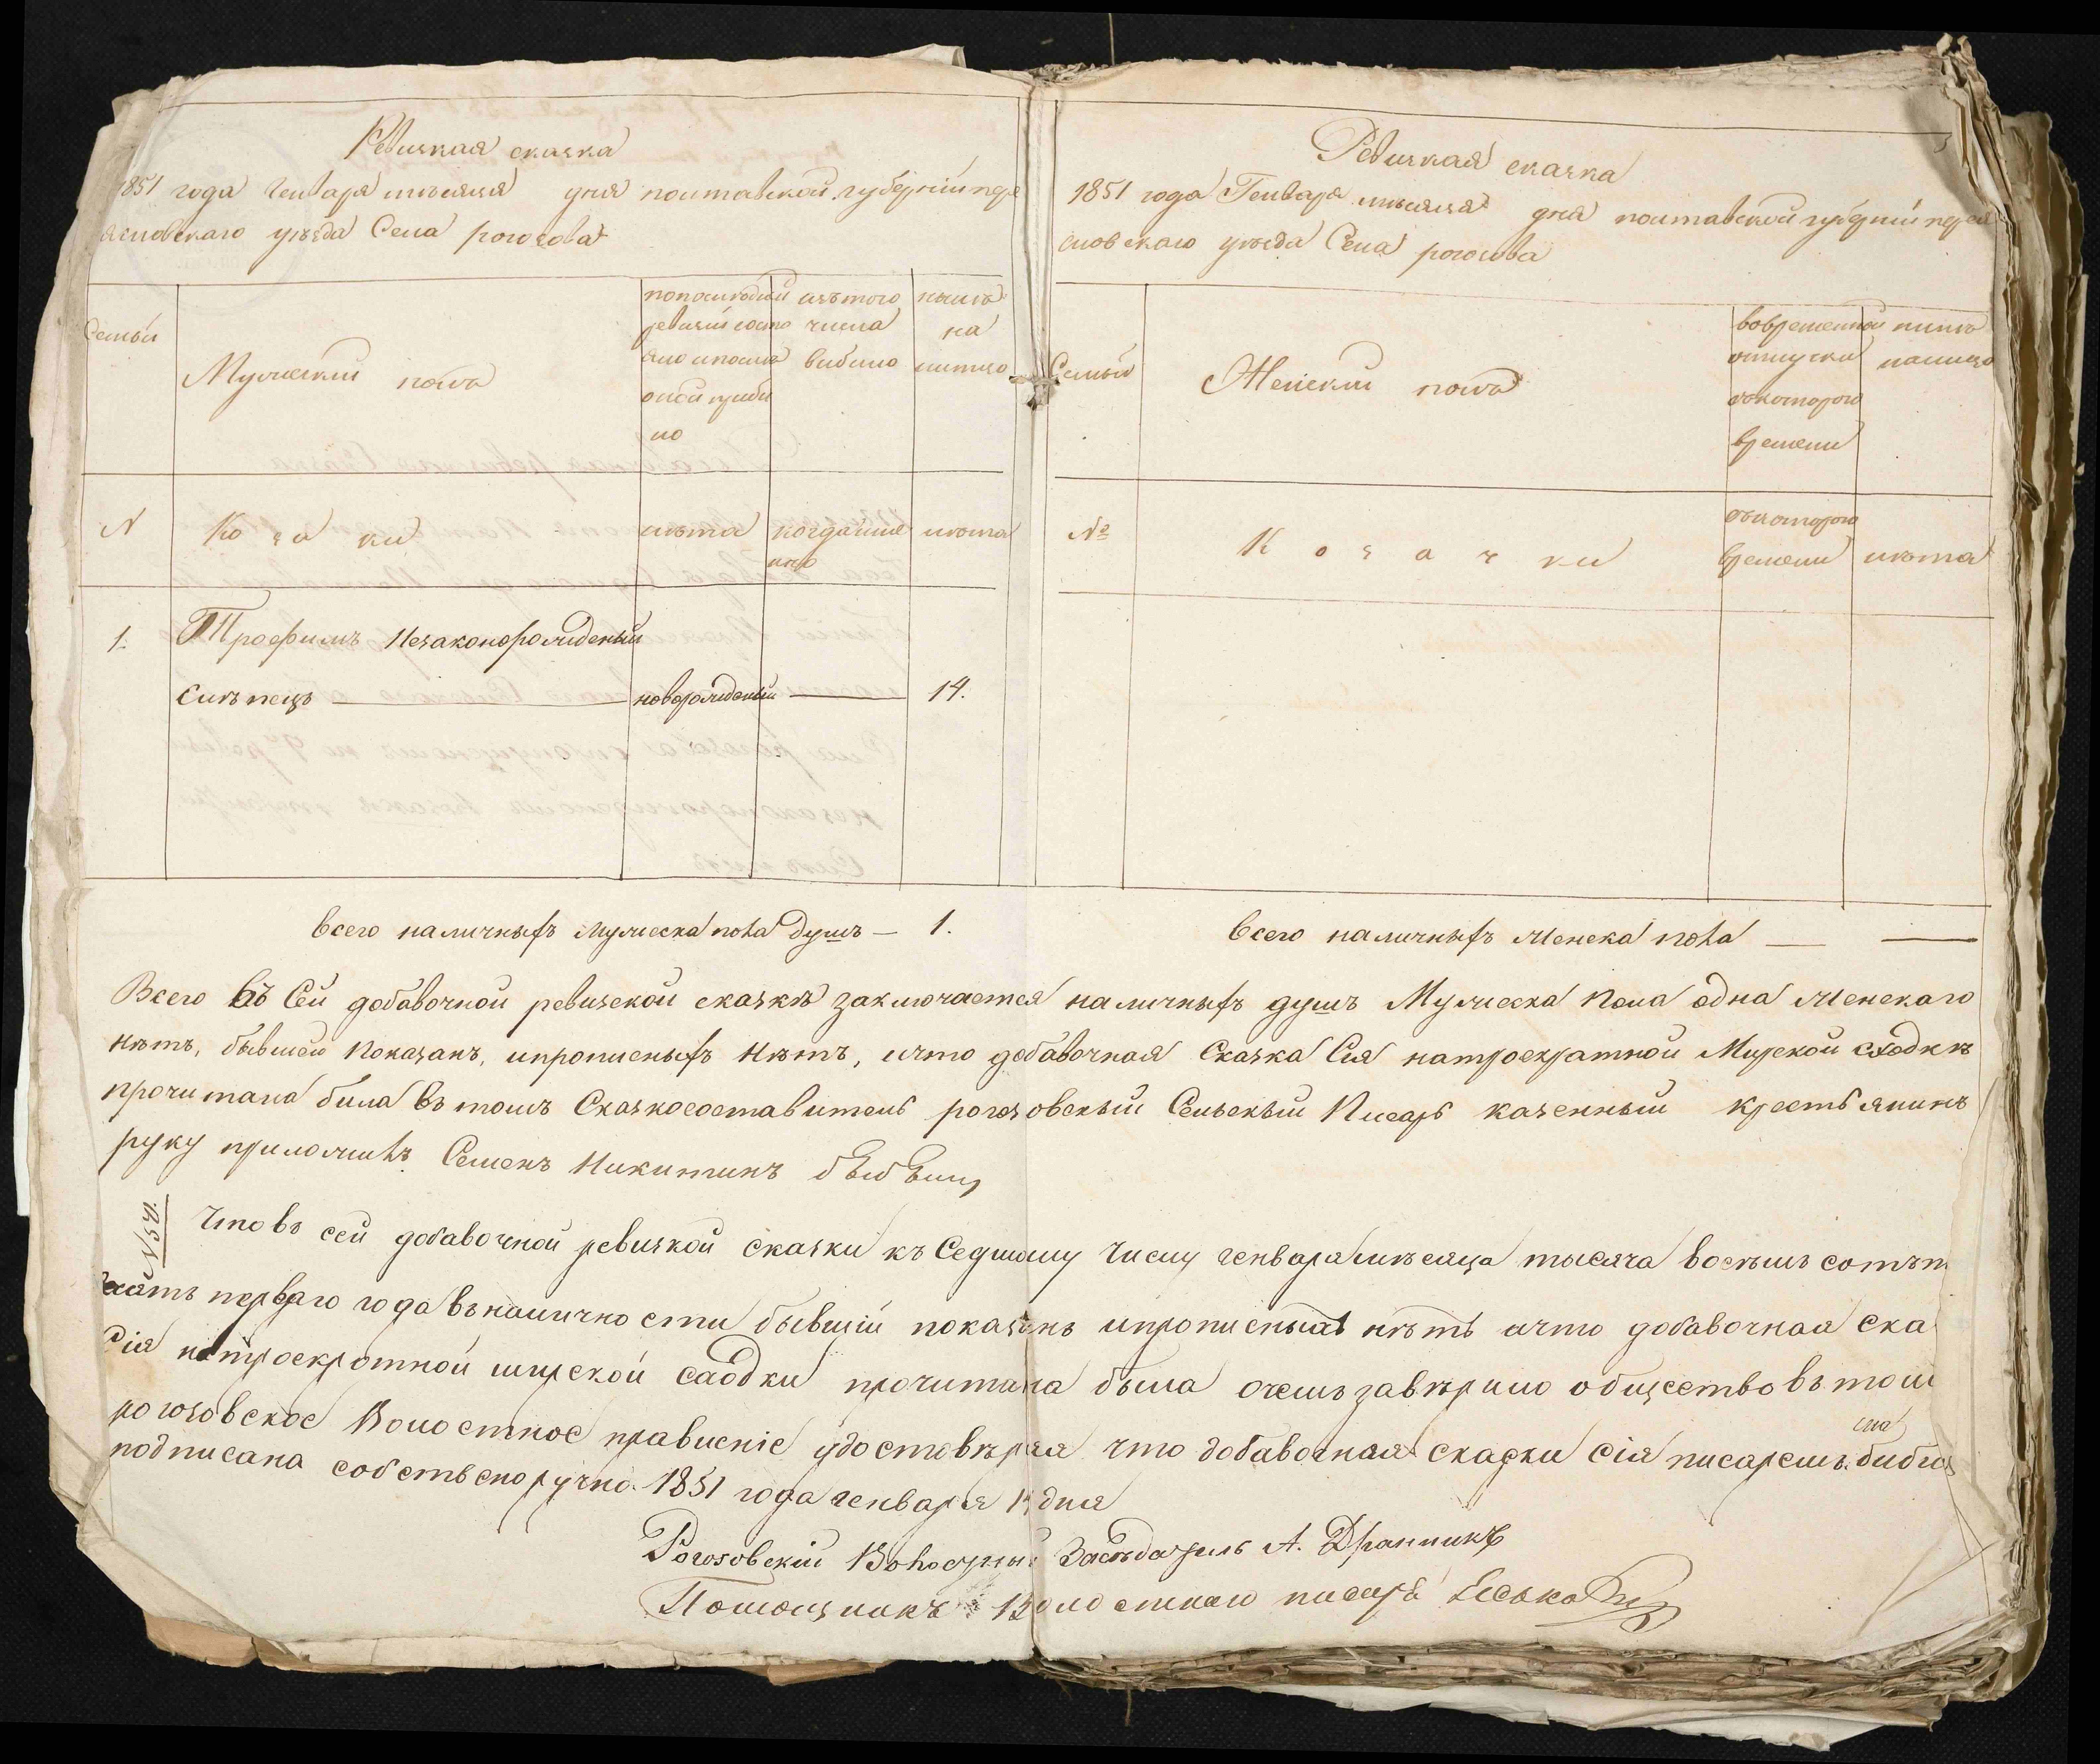 Ревизкая сказка
1851 года Генваря мѣсяця дня полтавской губерніи пере
яславскаго уѣзда Села рогозова
Семьи
Мужескій полъ
попослѣдней
ревизіи состо
яло и послѣ
оной прибы
ло
изътого
числа
вибило
нынѣ
на
лицо
N
Козаки
лѣта
когдаиме
нно
лѣта
1.
Трофимъ Незаконорожденый
Слѣпецъ — новорожденый — 14.
всего наличныхъ мужеска пола душъ — 1.
Ревизкая сказка
1851 года Генваря мѣсяця дня полтавской губерніи перея
словскаго уѣзда Села рогозова
Семьи
Женскій полъ
вовременной
отлучки
скоторого
времени
нинѣ
налицо
№
Козачки
съкоторого
времени
лѣта
всего наличныхъ женска пола — —
Всего въ Сей добавочной ревизской сказкѣ заключается наличныхъ душъ Мужеска Пола одна женскаго
нѣтъ, бывшей Показанъ, ипрописныхъ Нѣтъ, ичто добавочная Сказка Сія натроекратной Мирской сходкѣ
прочитана била въ томъ Сказкосоставитель рогозовскый Сельскый Писарь казенный крестьянинъ
руку приложилъ Семенъ Никитинъ
N 54.
Что въ сей добавочной ревизкой сказки къ Седмому Числу генваря мѣсяца тысяча восѣмь сотъ п
десятъ перваго года въналичности бывшій показанъ ипрописныхъ нѣтъ ичто добавочная ска
Сія натроекротной мирской сходки прочитана была очемъ завѣрило общество въ том
рогозовское Волостное правленіе удостовѣряя что добавочная сказки сія писаремъ
подписана собственоручно. 1851 года генваря дня
Рогозовскій Волостный Засѣдатель А. Дранникъ
Помощникъ Волостнаго писаря Редько